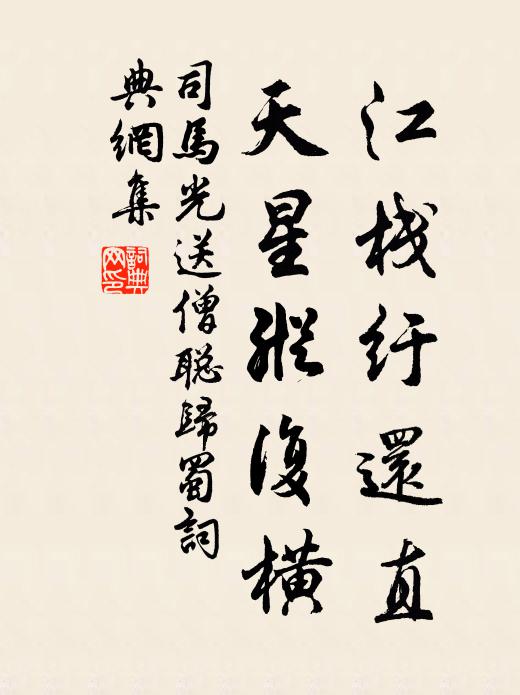 江棧紆還直
天星縱復橫
司馬光送僧聪歸蜀詞
典網集
詞典
网印